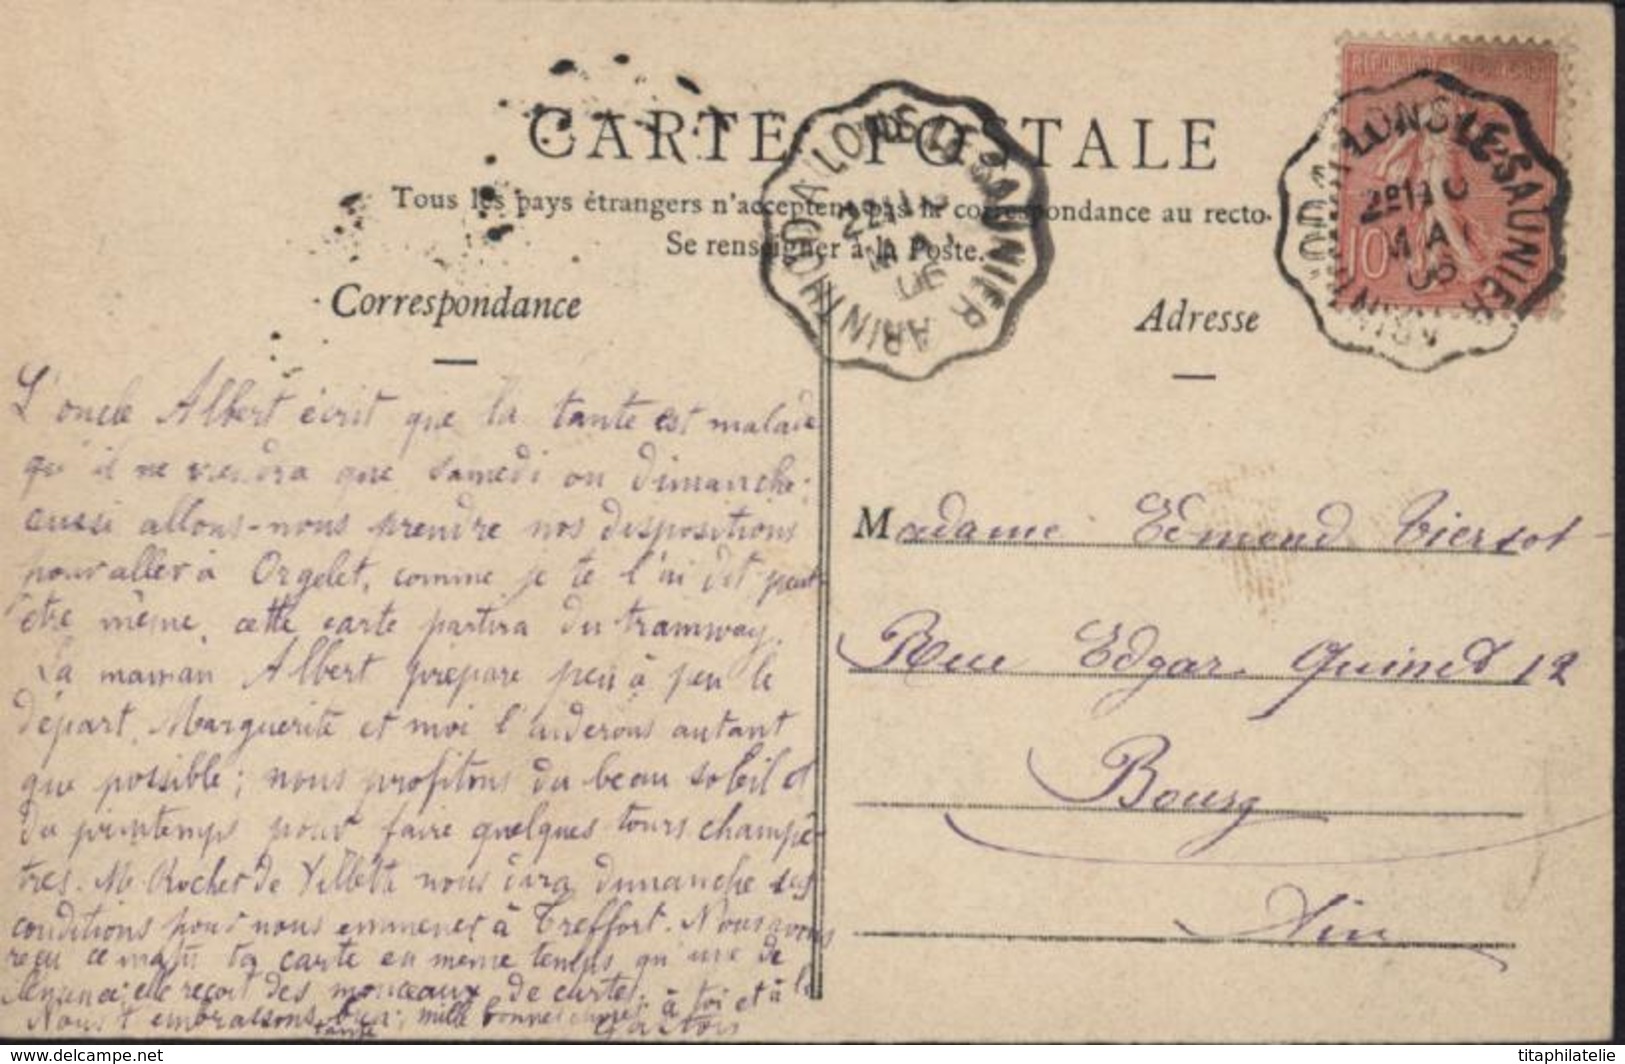 CARTE POSTALE
Tous les pays étrangers n'acceptent pas la correspondance au recto.
Se renseigner à la Poste.
Correspondance
Adresse
ARINTHOD A LONS-LE-SAUNIER
2E
MAI
06
10
LONS-LE-SAUNIER
2E
MAI
06
L'oncle Albert écrit que la tante est malade
qu'il ne viendra que samedi ou dimanche ;
aussi allons-nous prendre nos dispositions
pour aller à Orgelet, comme je te l'ai dit peut-
être même, cette carte partira du tramway.
La maman Albert prépare peu à peu le
départ, Marguerite et moi l'aiderons autant
que possible ; nous profitons du beau soleil et
du printemps pour faire quelques tours champê-
tres. M. Rochet de Villette nous dira dimanche ses
conditions pour nous emmener à Treffort. Nous avons
reçu ce matin ta carte en même temps qu'une de
Clémence ; elle reçoit des monceaux de cartes.
Nous t'embrassons bien ; mille bonnes à toi et à la
tante Gaston
Madame Edmond Tiersot
Rue Edgar Quinet 12
Bourg
Ain
www.delcampe.net
titaphilatelie